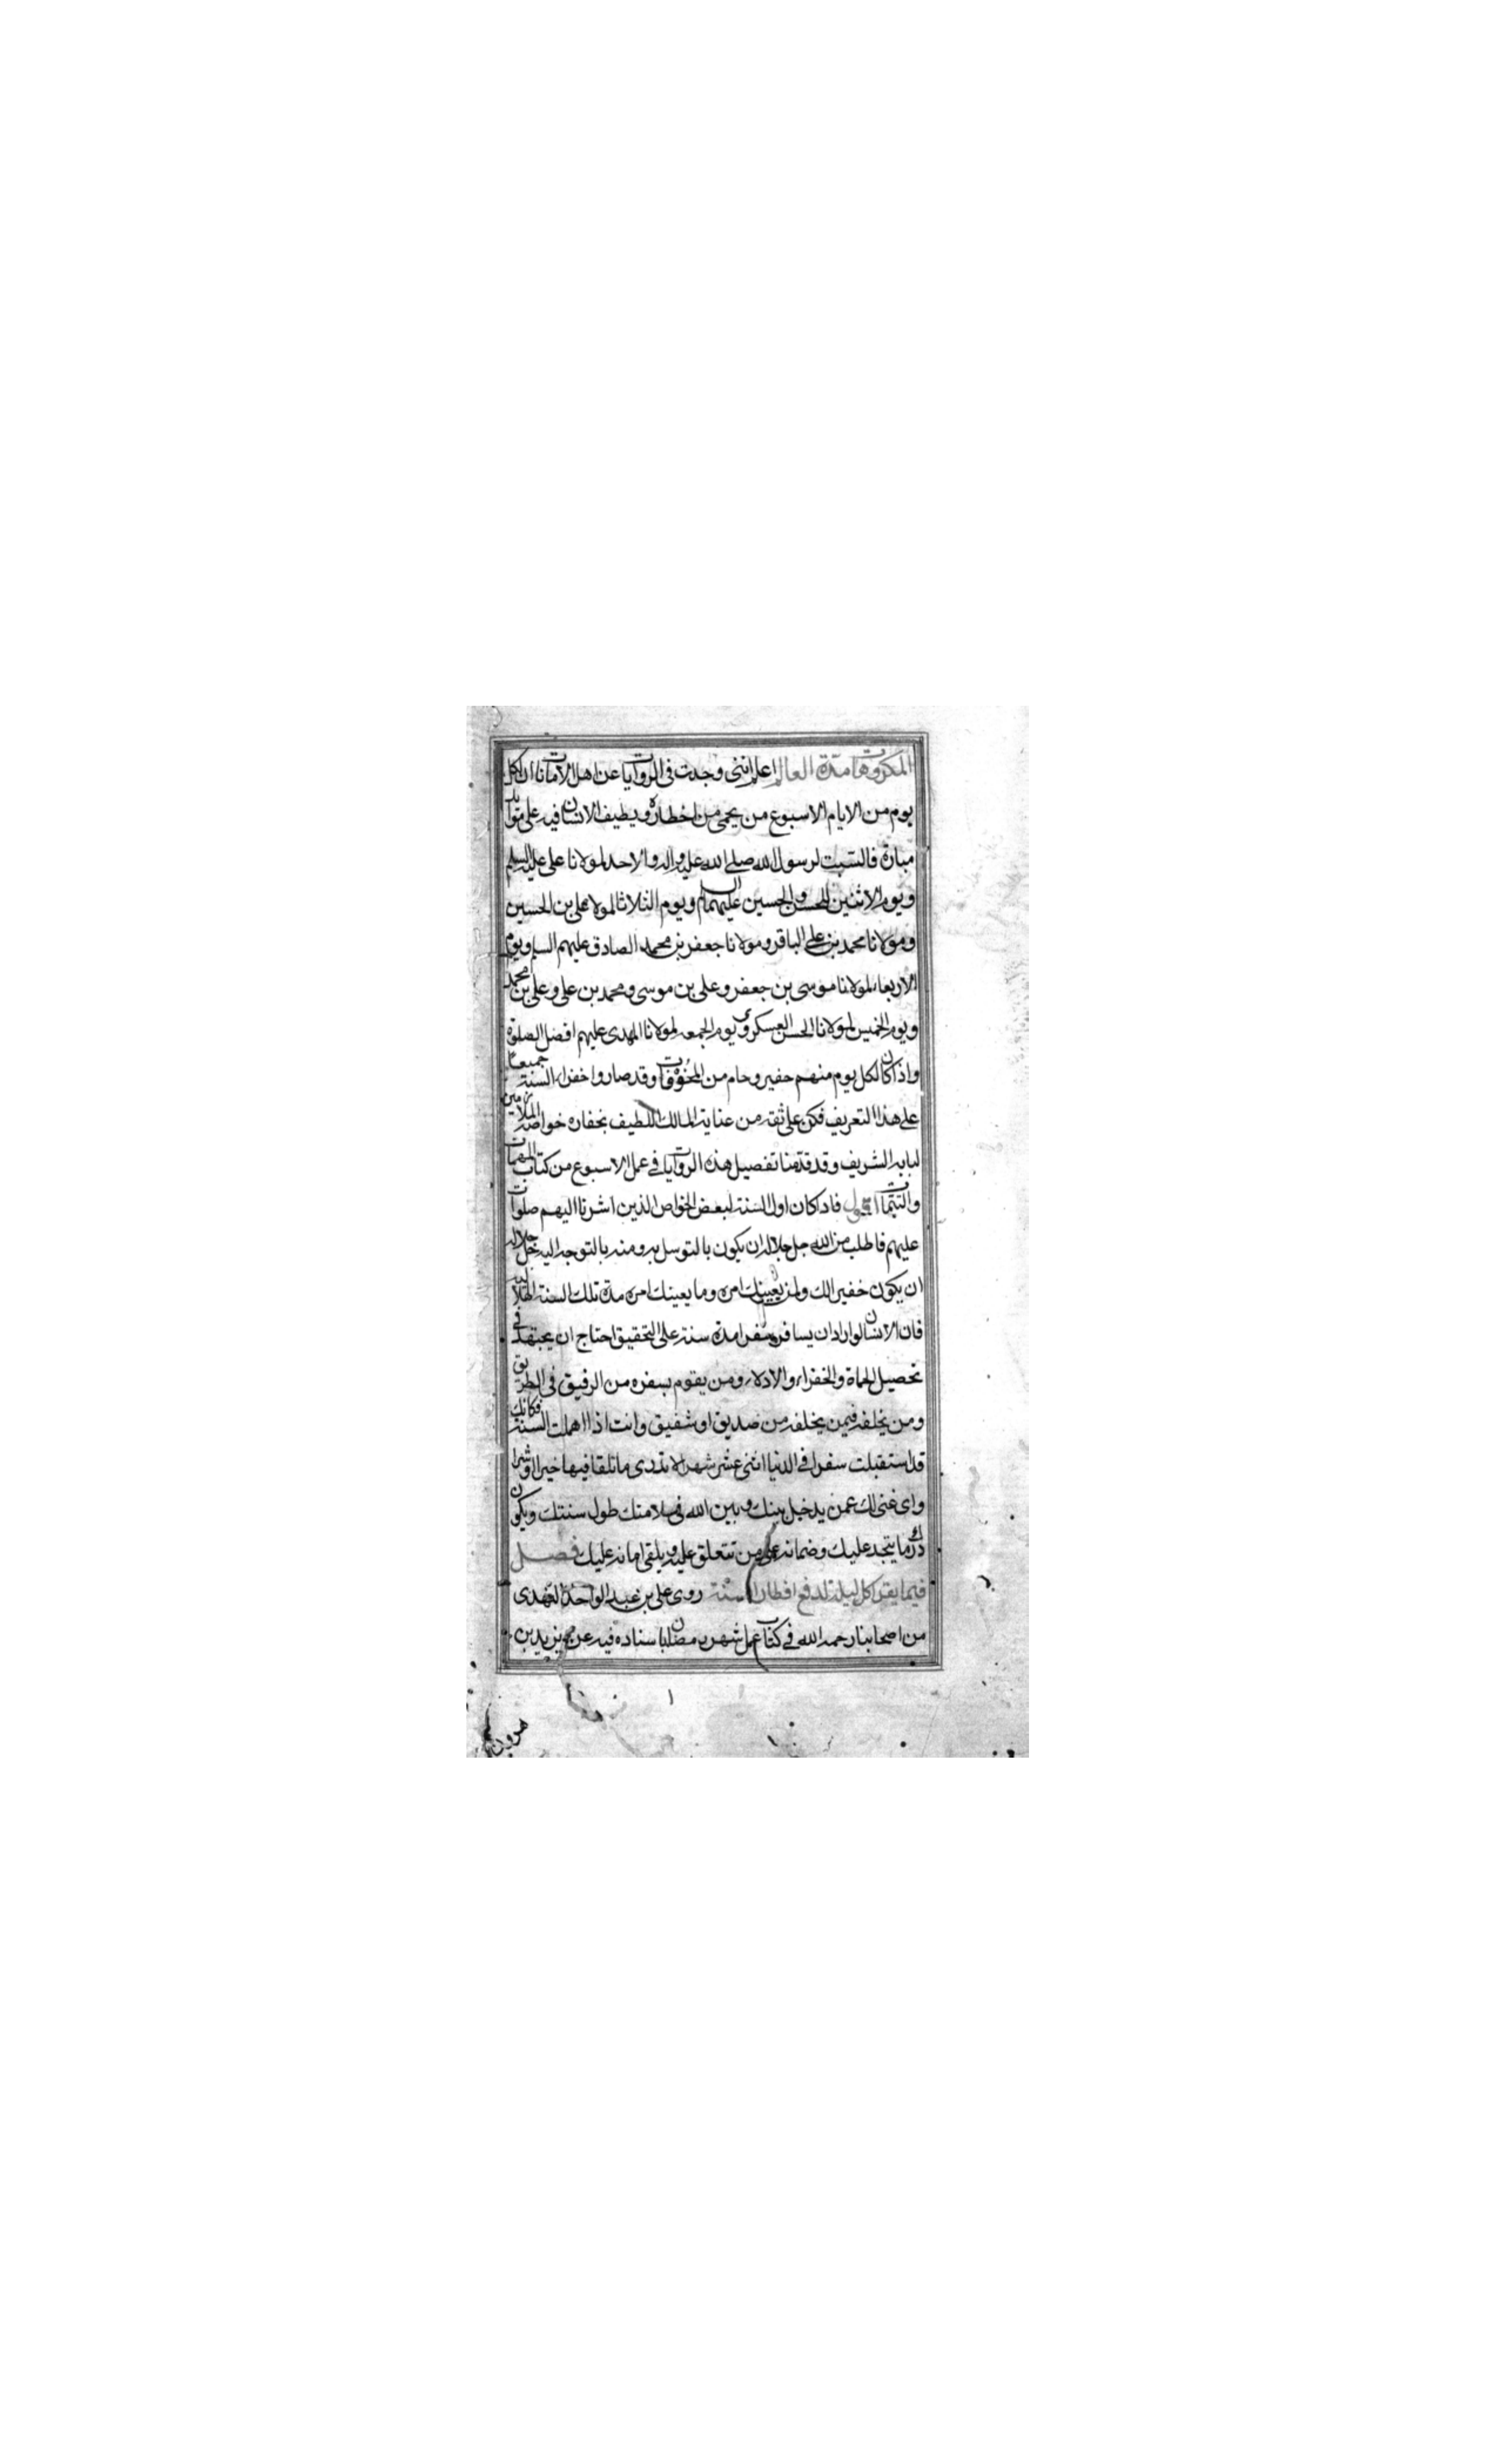 المكروهات مدّة العالم اعلم اننى وجدت فى الروايات عن اهل الامانات ان لكل
يوم من الايام الاسبوع من يحمى من اخطاره ويطيف الانسان فيه على موائد
مباره فالسّبت لرسول الله صلى الله عليه واله والاحد لمولانا على عليه السلم
ويوم الاثنين للحسن والحسين عليهما السلم ويوم الثلاثا لمولانا على بن الحسين
ومولانا محمد بن على الباقر ومولانا جعفر بن محمد الصادق عليهم السلم ويوم
الاربعاء لمولانا موسى بن جعفر وعلى بن موسى ومحمد بن على وعلى بن محمد
ويوم الخميس لمولانا الحسن العسكرى ويوم الجمعه لمولانا المهدى عليهم افضل الصلوة
واذا كان لكل يوم منهم خفير وحام من المخوفات وقد صاروا خفراء السنة جميعا
على هذا التعريف فكن على ثقة من عناية المالك اللطيف بخفاره خواصه الملازمين
لبابه الشريف وقد قدّمنا تفصيل هذه الروايات فى عمل الاسبوع من كتاب المهمات
والتتمات اقول فاذا كان اول السنة لبعض الخواص الذين اشرنا اليهم صلوات
عليهم فاطلب من الله جل جلاله ان يكون بالتوسل به ومنه بالتوجه اليه جل جلاله
ان يكون خفيرا لك ولمن يعينك امره وما يعينك امره مدة تلك السنة الهلالية
فان الانسان لو اراد ان يسافر سفرا مدة سنة على التحقيق احتاج ان يجتهد فى
تحصيل الحماة والخفراء والادلاء ومن يقوم بسفره من الرفيق فى الطريق
ومن يخلفه فيمن يخلفه من صديق او شفيق وانت اذا اهملت السنة فكانك
قد استقبلت سفرا فى الدنيا اثنى عشر شهرا لا تدرى ما تلقا فيها خيرا او شرا
واى غنى لك عمن يدخل بينك وبين الله فى سلامتك طول سنتك ويكون
درك ما يتجد عليك وضمانه على من تتعلق عليه ويلقى امانه عليك فصل
فيما يقرا كل ليلة لدفع اخطار السنة روى على بن عبد الواحد النهدى
من اصحابنا رحمه الله فى كتاب عمل شهر رمضان باسناده فيه عن يزيد بن